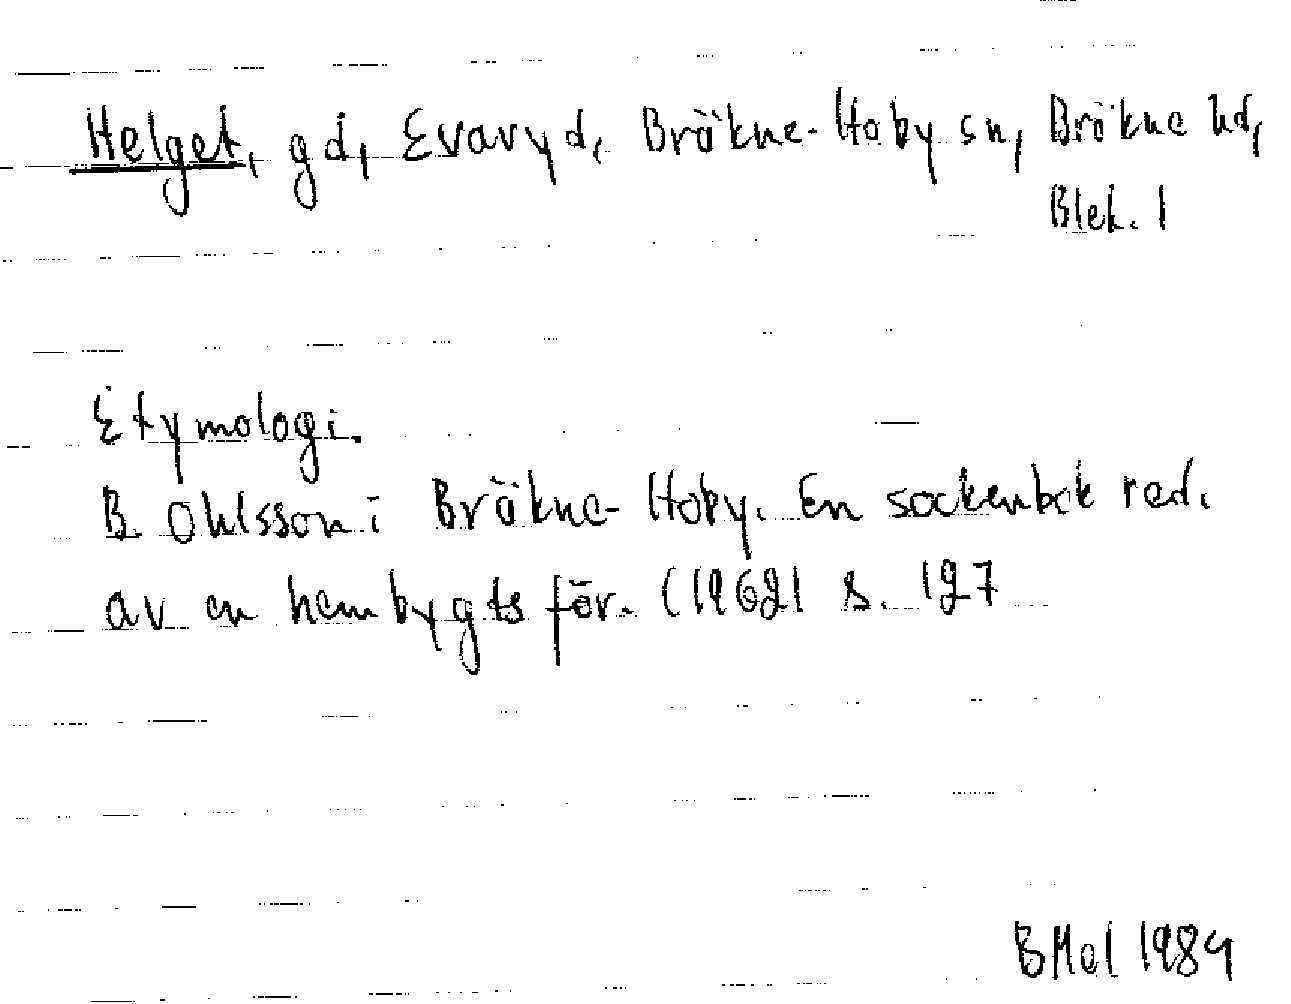 Helget, gd, Evaryd, Bräkne-Hoby sn, Bräkne hd,
Blek. l
Etymologi.
B. Ohlsson i Bräkne-Hoby. En sockenbok red.
av en hembygdsför. (1962) s. 127
BMol 1984